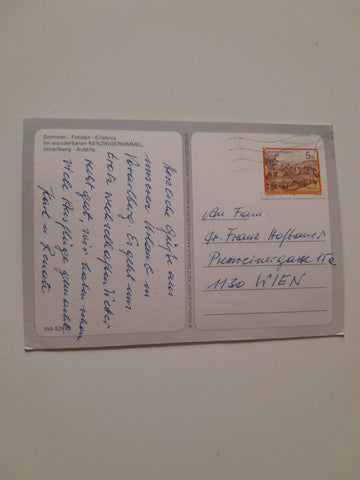 Sommer - Freizeit - Erlebnis
im wanderbaren NENZINGERHIMMEL,
Vorarlberg - Austria
Herzliche Grüße aus
unserem Urlaub in
Vorarlberg. Es geht uns
trotz wechselhaften Wetter
sehr gut, wir haben schon
viele Ausflüge gemacht.
Karl u. Renate
WA 52
5
An Fam.
Dr. Franz Hofbauer
Premreinergasse 11
1130 WIEN